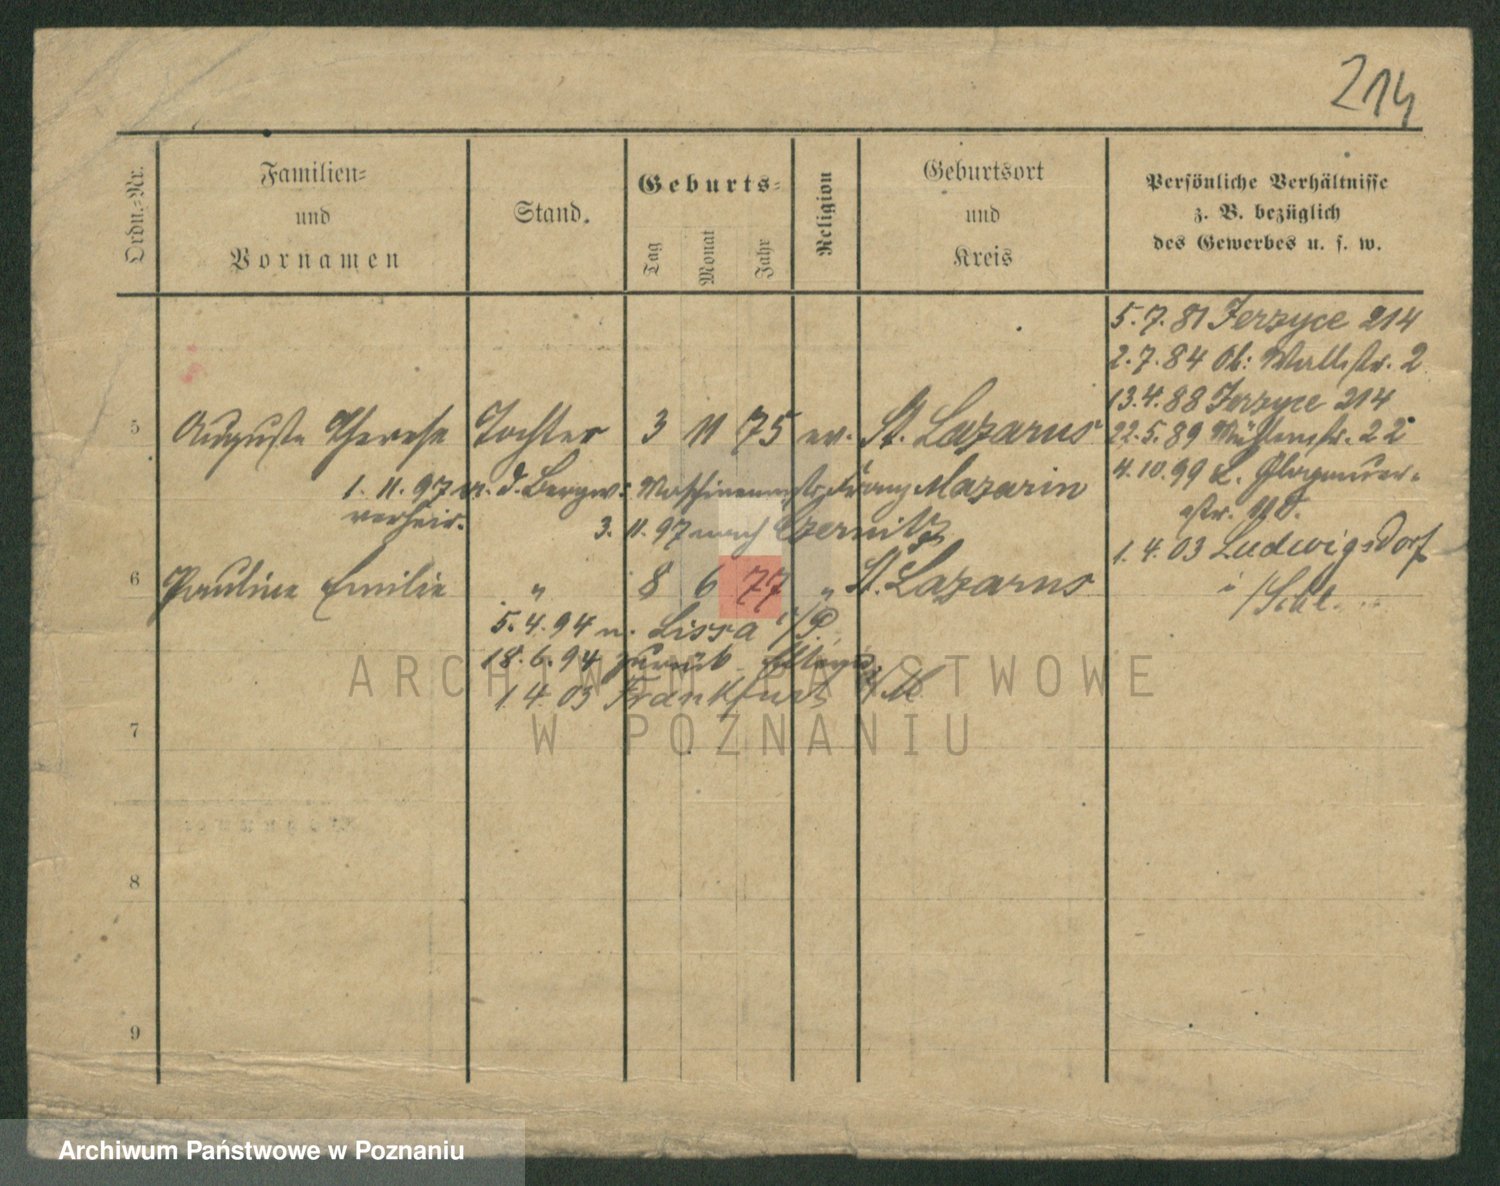 214
Ordn.-Nr.
Familien-
und
Vornamen
Stand.
Geburts-
Tag
Monat
Jahr
Religion
Geburtsort
und
Kreis
Persönliche Verhältnisse
z. B. bezüglich
des Gewerbes u. s. w.
5.7.81 Jerzyce 214
2.7.84 Ob: Wallstr. 2
13.4.88 Jerzyce 214
5 Auguste Therese Tochter 3 11 75 ev. St. Lazarus
22.5.89 Mühlenstr. 22
1. 11. 97 m. d. Bergw: Maschinenmstr Franz Mazarin
4.10.99 L. Glogauer-
verheir. 3. 11. 97 nach Czernitz
str.
1.4.03 Ludwigsdorf
6 Pauline Emilie " 8 6 77 " St. Lazarus
i/Schl.
5.4.94 n. Lissa i/P.
18.6.94 zurück
1 4. 03 Frankfurt a/M
7
8
9
ARCHIWUM PAŃSTWOWE
W POZNANIU
Archiwum Państwowe w Poznaniu